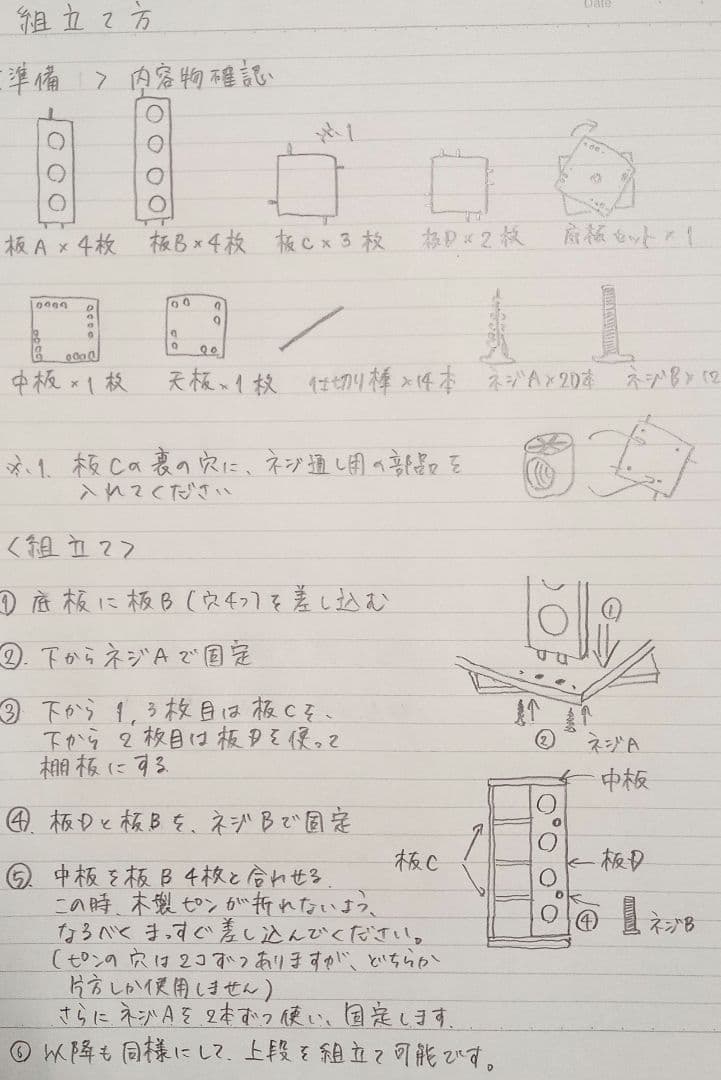 Date
組立て方
準備 > 内容物確認
※1
板A×4枚 板B×4枚 板C×3枚 板D×2枚 底板セット×1
中板×1枚 天板×1枚 仕切り棒×14本 ネジA×20本 ネジB×12
※1. 板Cの裏の穴に、ネジ通し用の部品を
入れてください
〈組立て〉
① 底板に板B(穴4つ)を差し込む
①
②. 下からネジAで固定
② ネジA
③ 下から1,3枚目は板Cを、
下から2枚目は板Dを使って
棚板にする
中板
④. 板Dと板Bを、ネジBで固定
板C
板D
④ ネジB
⑤. 中板を板B4枚と合わせる.
この時、木製ピンが折れないよう、
なるべくまっすぐ差し込んでください。
(ピンの穴は2コずつありますが、どちらか
片方しか使用しません)
さらにネジAを2本ずつ使い、固定します.
⑥ 以降も同様にして、上段を組立て可能です。